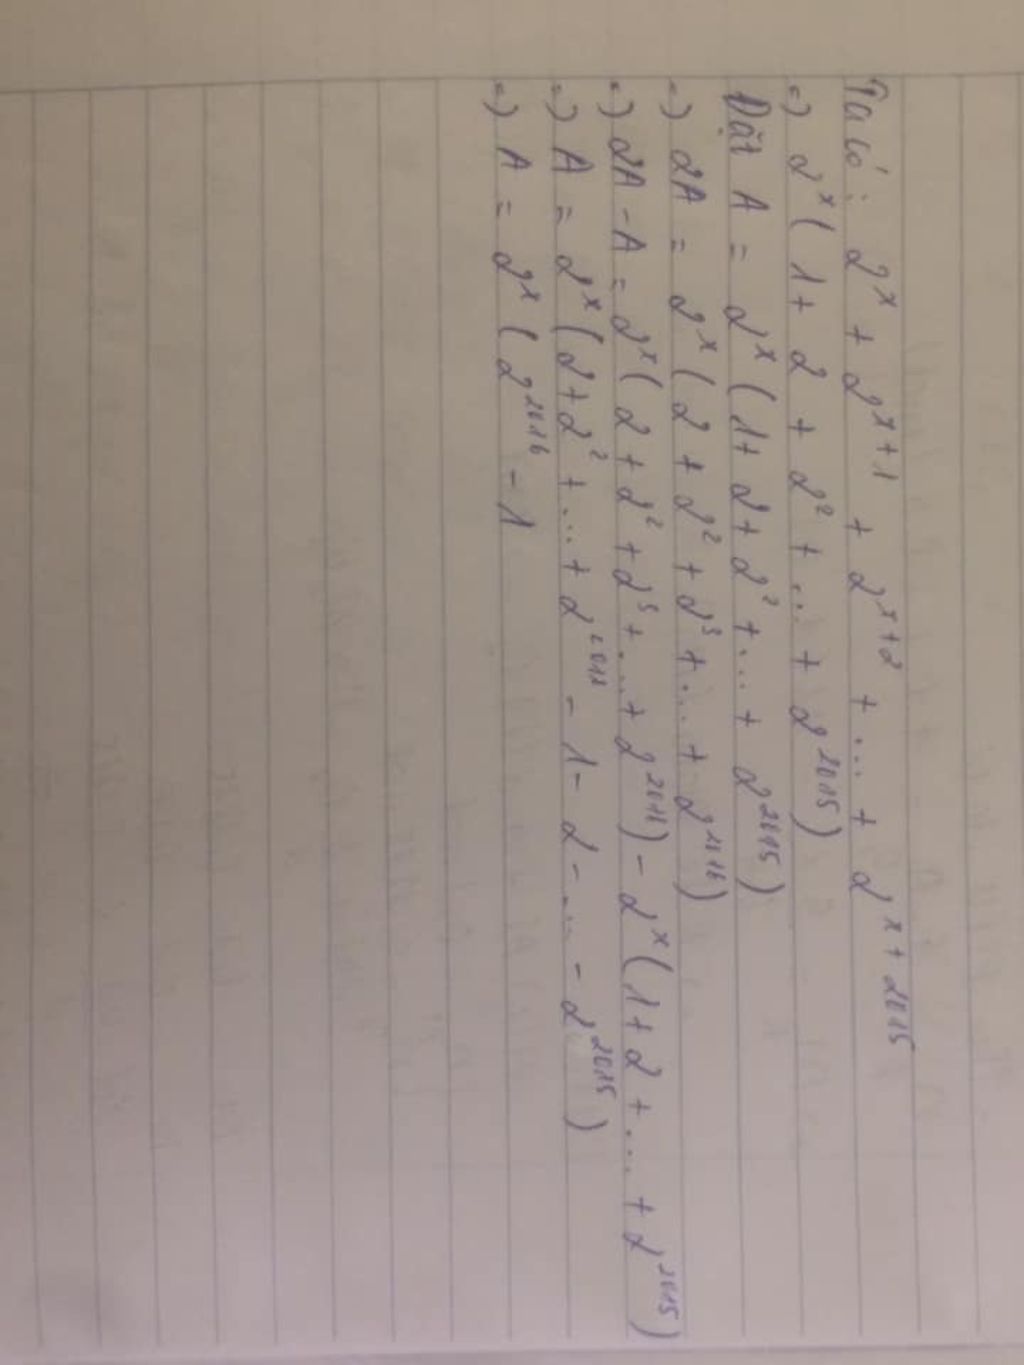 Ta có: 2^x + 2^{x+1} + 2^{x+2} + ... + 2^{x+2015}
=) 2^x ( 1 + 2 + 2^2 + ... + 2^{2015} )
Đặt A = 2^x ( 1 + 2 + 2^2 + ... + 2^{2015} )
=) 2A = 2^x ( 2 + 2^2 + 2^3 + ... + 2^{2016} )
=) 2A - A = 2^x ( 2 + 2^2 + 2^3 + ... + 2^{2016} ) - 2^x ( 1 + 2 + ... + 2^{2015} )
=) A = 2^x ( 2 + 2^2 + ... + 2 - 1 - 2 - ... - 2^{2015} )
=) A = 2^x ( 2^{2016} - 1